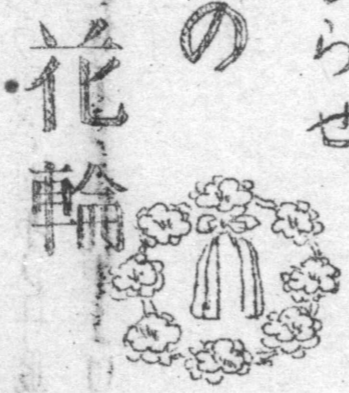 らせ
の
花輪